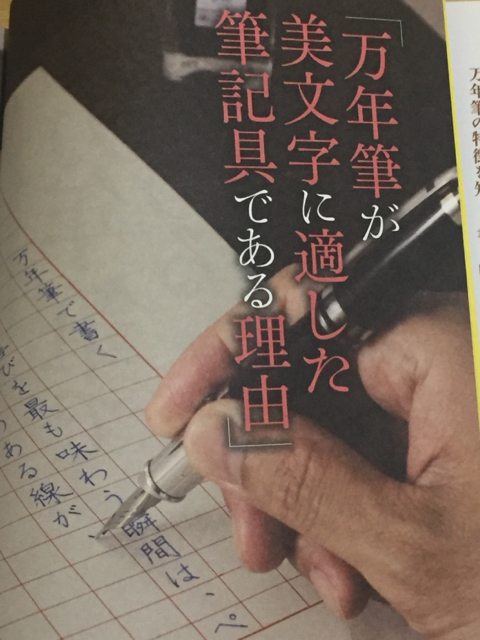 「万年筆が
美文字に適した
筆記具である理由」
万年筆で書く
びを最も味わう瞬間は、ペ
ある線が
万年筆の特徴を